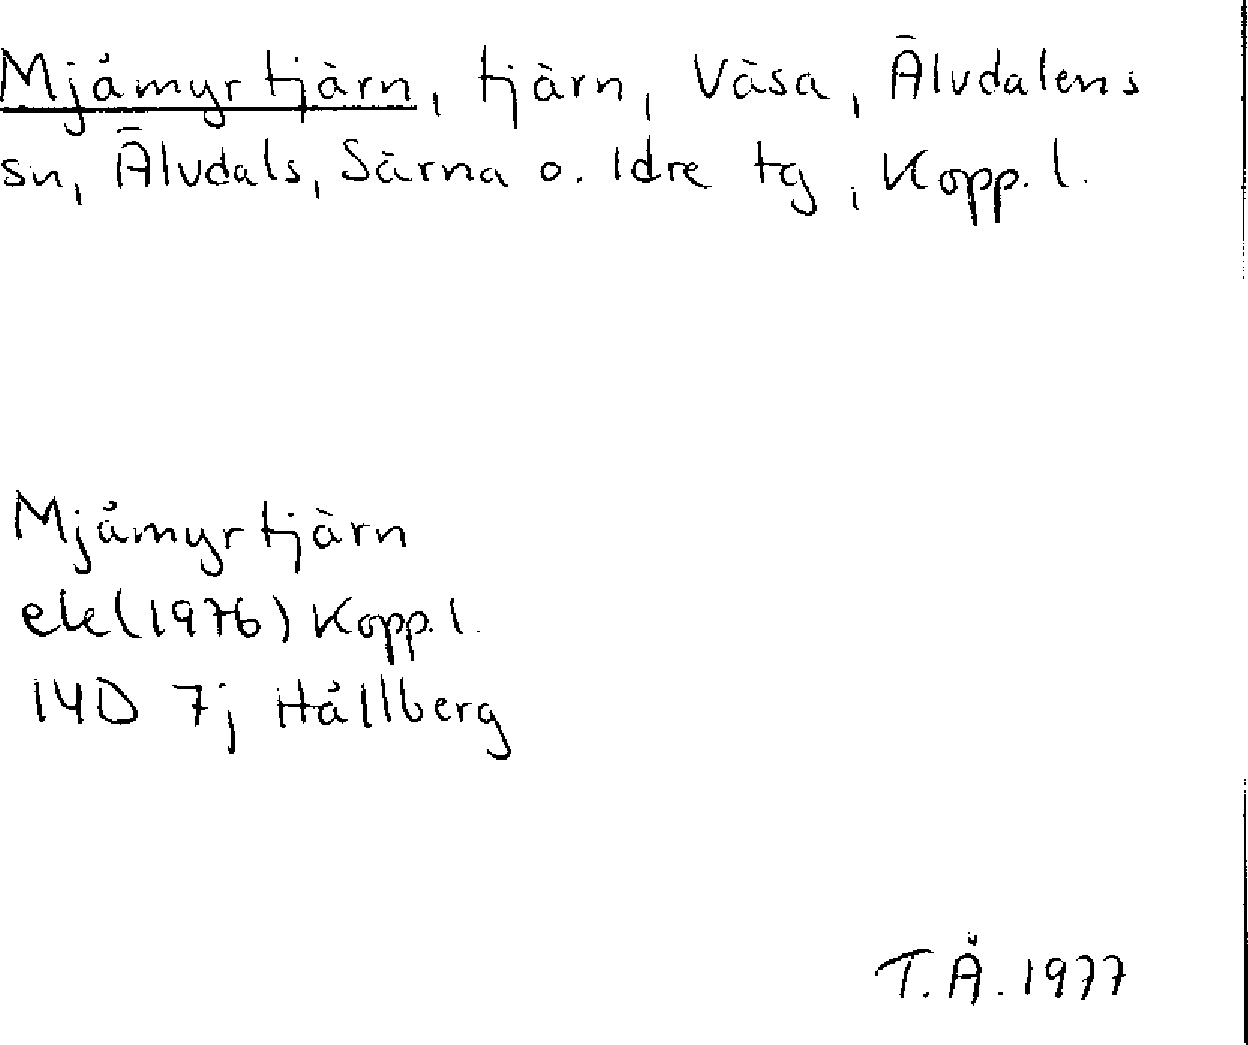 Mjåmyrtjärn, tjärn, Väsa, Älvdalens
sn, Älvdals, Särna o. Idre tg, Kopp. l.
Mjåmyrtjärn
ek(1976) Kopp. l.
14D 7j Hållberg
T. Å. 1977